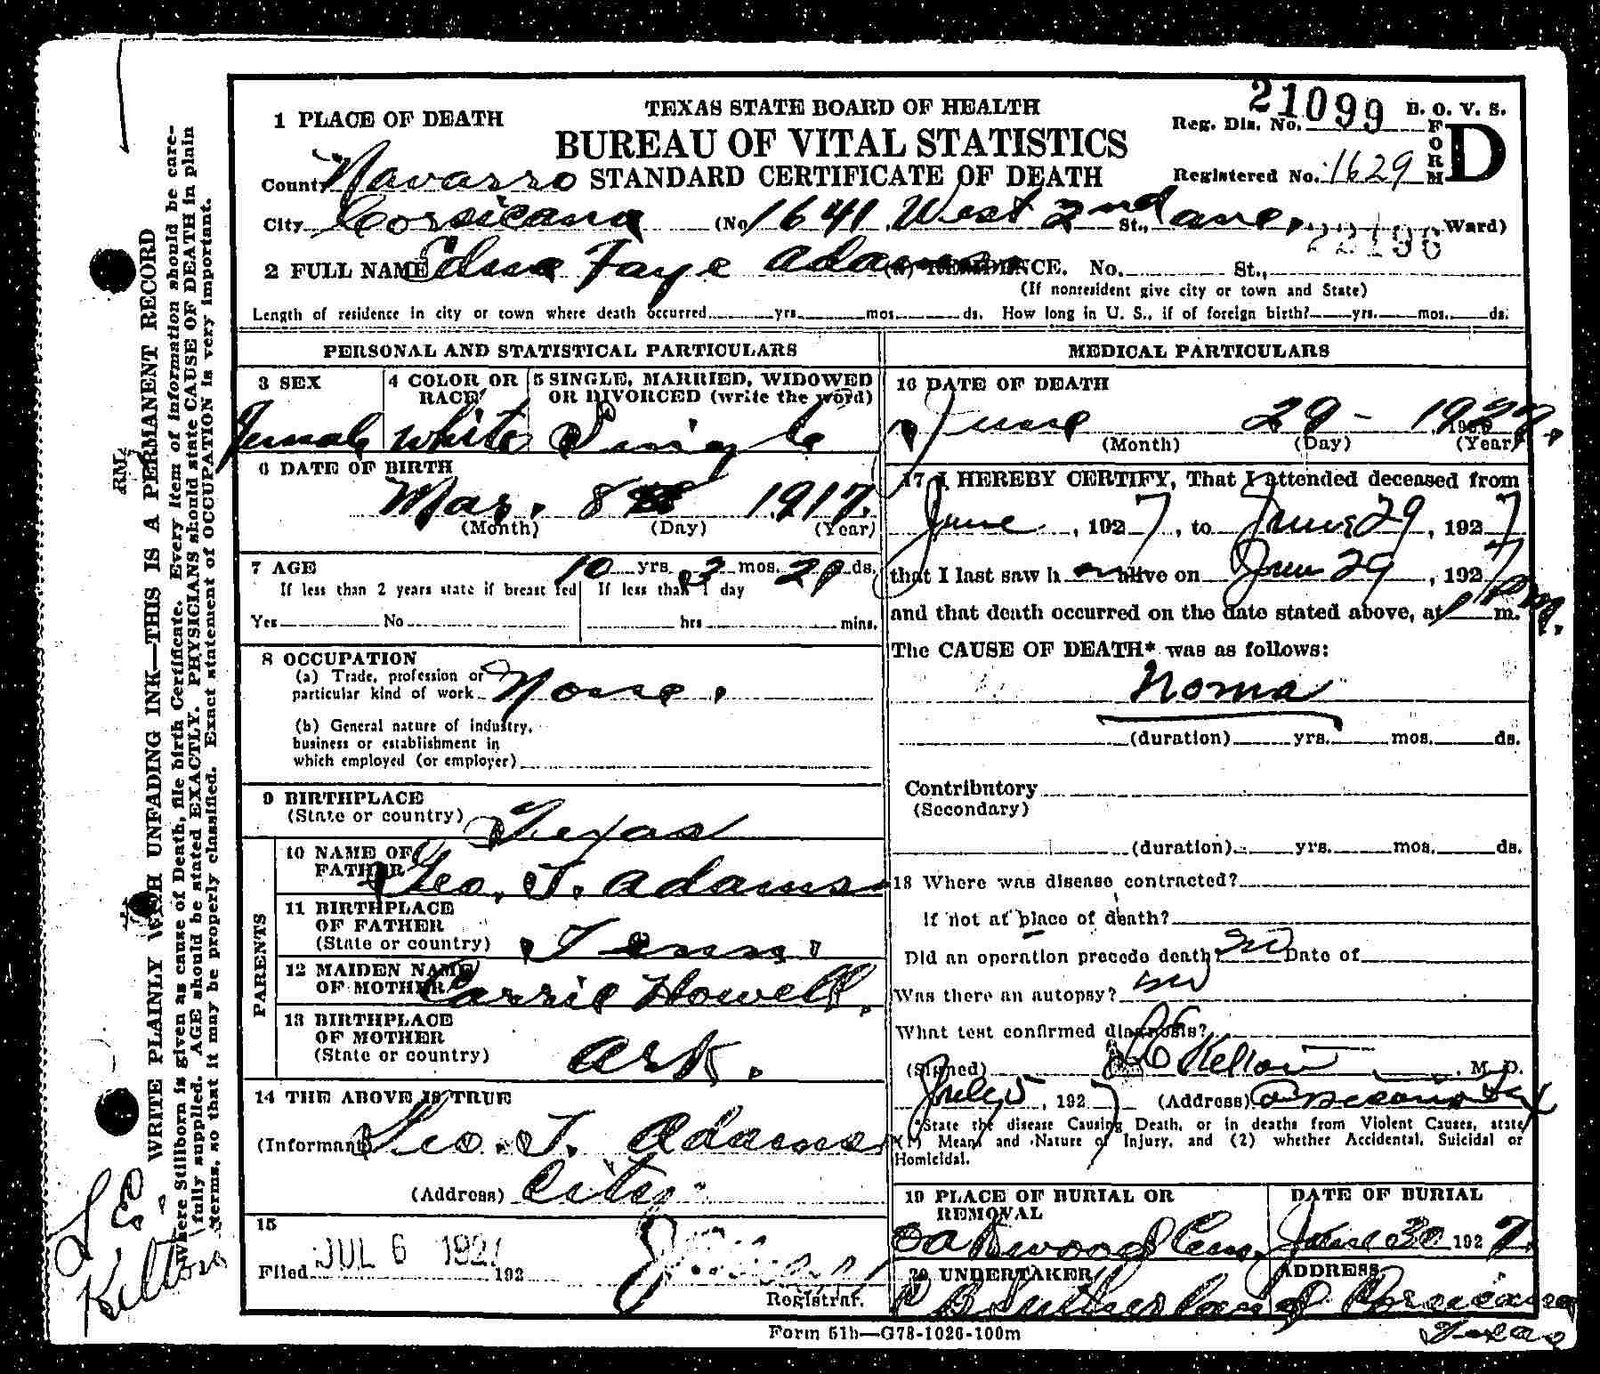 TEXAS STATE BOARD OF HEALTH
BUREAU OF VITAL STATISTICS
STANDARD CERTIFICATE OF DEATH
21099 B. O. V. S.
Reg. Dis. No.
FORM D
Registered No. 1629
1 PLACE OF DEATH
County Navarro
City Corsicana (No 1641 West 2nd St., ave, Ward)
22196
2 FULL NAME Edna Faye Adams (a) RESIDENCE. No. St.,
(If nonresident give city or town and State)
Length of residence in city or town where death occurred yrs. mos. ds. How long in U. S., if of foreign birth? yrs. mos. ds.
PERSONAL AND STATISTICAL PARTICULARS
3 SEX
Female
4 COLOR OR RACE
white
5 SINGLE, MARRIED, WIDOWED
OR DIVORCED (write the word)
Single
6 DATE OF BIRTH
Mar. 8 1917.
(Month) (Day) (Year)
7 AGE 10 yrs. 3 mos. 21 ds.
If less than 2 years state if breast fed
Yes No
If less than 1 day
hrs mins.
8 OCCUPATION
(a) Trade, profession or
particular kind of work None.
(b) General nature of industry,
business or establishment in
which employed (or employer)
9 BIRTHPLACE
(State or country) Texas
PARENTS
10 NAME OF
FATHER Geo. T. Adams
11 BIRTHPLACE
OF FATHER
(State or country) Tenn.
12 MAIDEN NAME
OF MOTHER Carrie Howell.
13 BIRTHPLACE
OF MOTHER
(State or country) Ark.
14 THE ABOVE IS TRUE
(Informant Geo. T. Adams
(Address) City.
15
Filed JUL 6 1927 192
Registrar.
MEDICAL PARTICULARS
16 DATE OF DEATH
June 29 - 1927.
(Month) (Day) (Year)
17 I HEREBY CERTIFY, That I attended deceased from
June , 1927, to June 29, 1927
that I last saw h er alive on June 29, 1927
and that death occurred on the date stated above, at 1 P m.
The CAUSE OF DEATH* was as follows:
Noma
(duration) yrs. mos. ds.
Contributory
(Secondary)
(duration) yrs. mos. ds.
18 Where was disease contracted?
If not at place of death?
Did an operation precede death? no Date of
Was there an autopsy? no
What test confirmed diagnosis?
(Signed) M. D.
July 5, 1927 (Address) Corsicana Tex
*State the disease Causing Death, or in deaths from Violent Causes, state
(1) Means and Nature of Injury, and (2) whether Accidental, Suicidal or
Homicidal.
19 PLACE OF BURIAL OR
REMOVAL
Oakwood Cem.
DATE OF BURIAL
June 30 1927.
20 UNDERTAKER
Sutherland
ADDRESS
Corsicana
Texas
Form 51b—G78-1026-100m
WRITE PLAINLY WITH UNFADING INK—THIS IS A PERMANENT RECORD
Where Stillborn is given as cause of Death, file birth Certificate. Every item of information should be care-
fully supplied. AGE should be stated EXACTLY. PHYSICIANS should state CAUSE OF DEATH in plain
terms, so that it may be properly classified. Exact statement of OCCUPATION is very important.